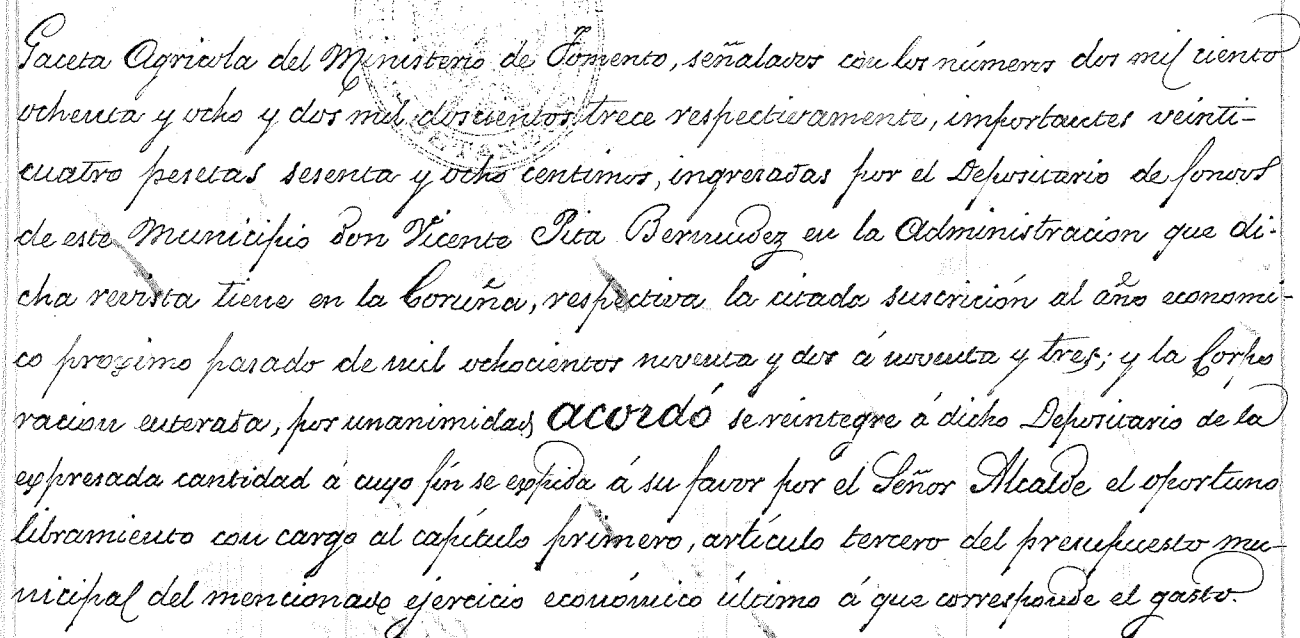 Gaceta Agricola del Ministerio de Fomento, señalados con los números dos mil ciento
ochenta y ocho y dos mil doscientos trece respectivamente, importantes veinti-
cuatro pesetas sesenta y ocho centimos, ingresadas por el Depositario de fondos
de este Municipio don Vicente Pita Bermudez en la Administración que di-
cha revista tiene en la Coruña, respectiva la citada suscrición al año economi-
co proximo pasado de mil ochocientos noventa y dos á noventa y tres; y la Corpo
ración enterada, por unanimidad acordó se reintegre á dicho Depositario de la
expresada cantidad á cuyo fín se expida á su favor por el Señor Alcalde el oportuno
libramiento con cargo al capítulo primero, artículo tercero del presupuesto mu-
nicipal del mencionado ejercicio económico último á que corresponde el gasto.